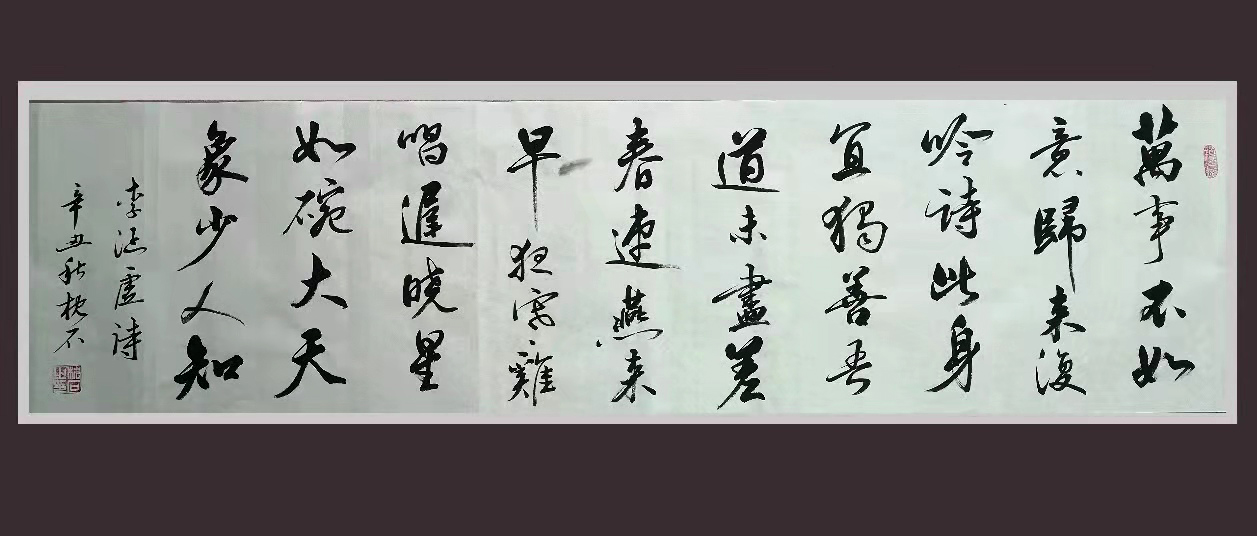 萬事不如
意歸來復
吟詩此身
宜獨善吾
道未盡差
春速燕來
早狂寒雞
唱遲曉星
如碗大天
象少人知
李涵虛詩
辛丑秋枕石